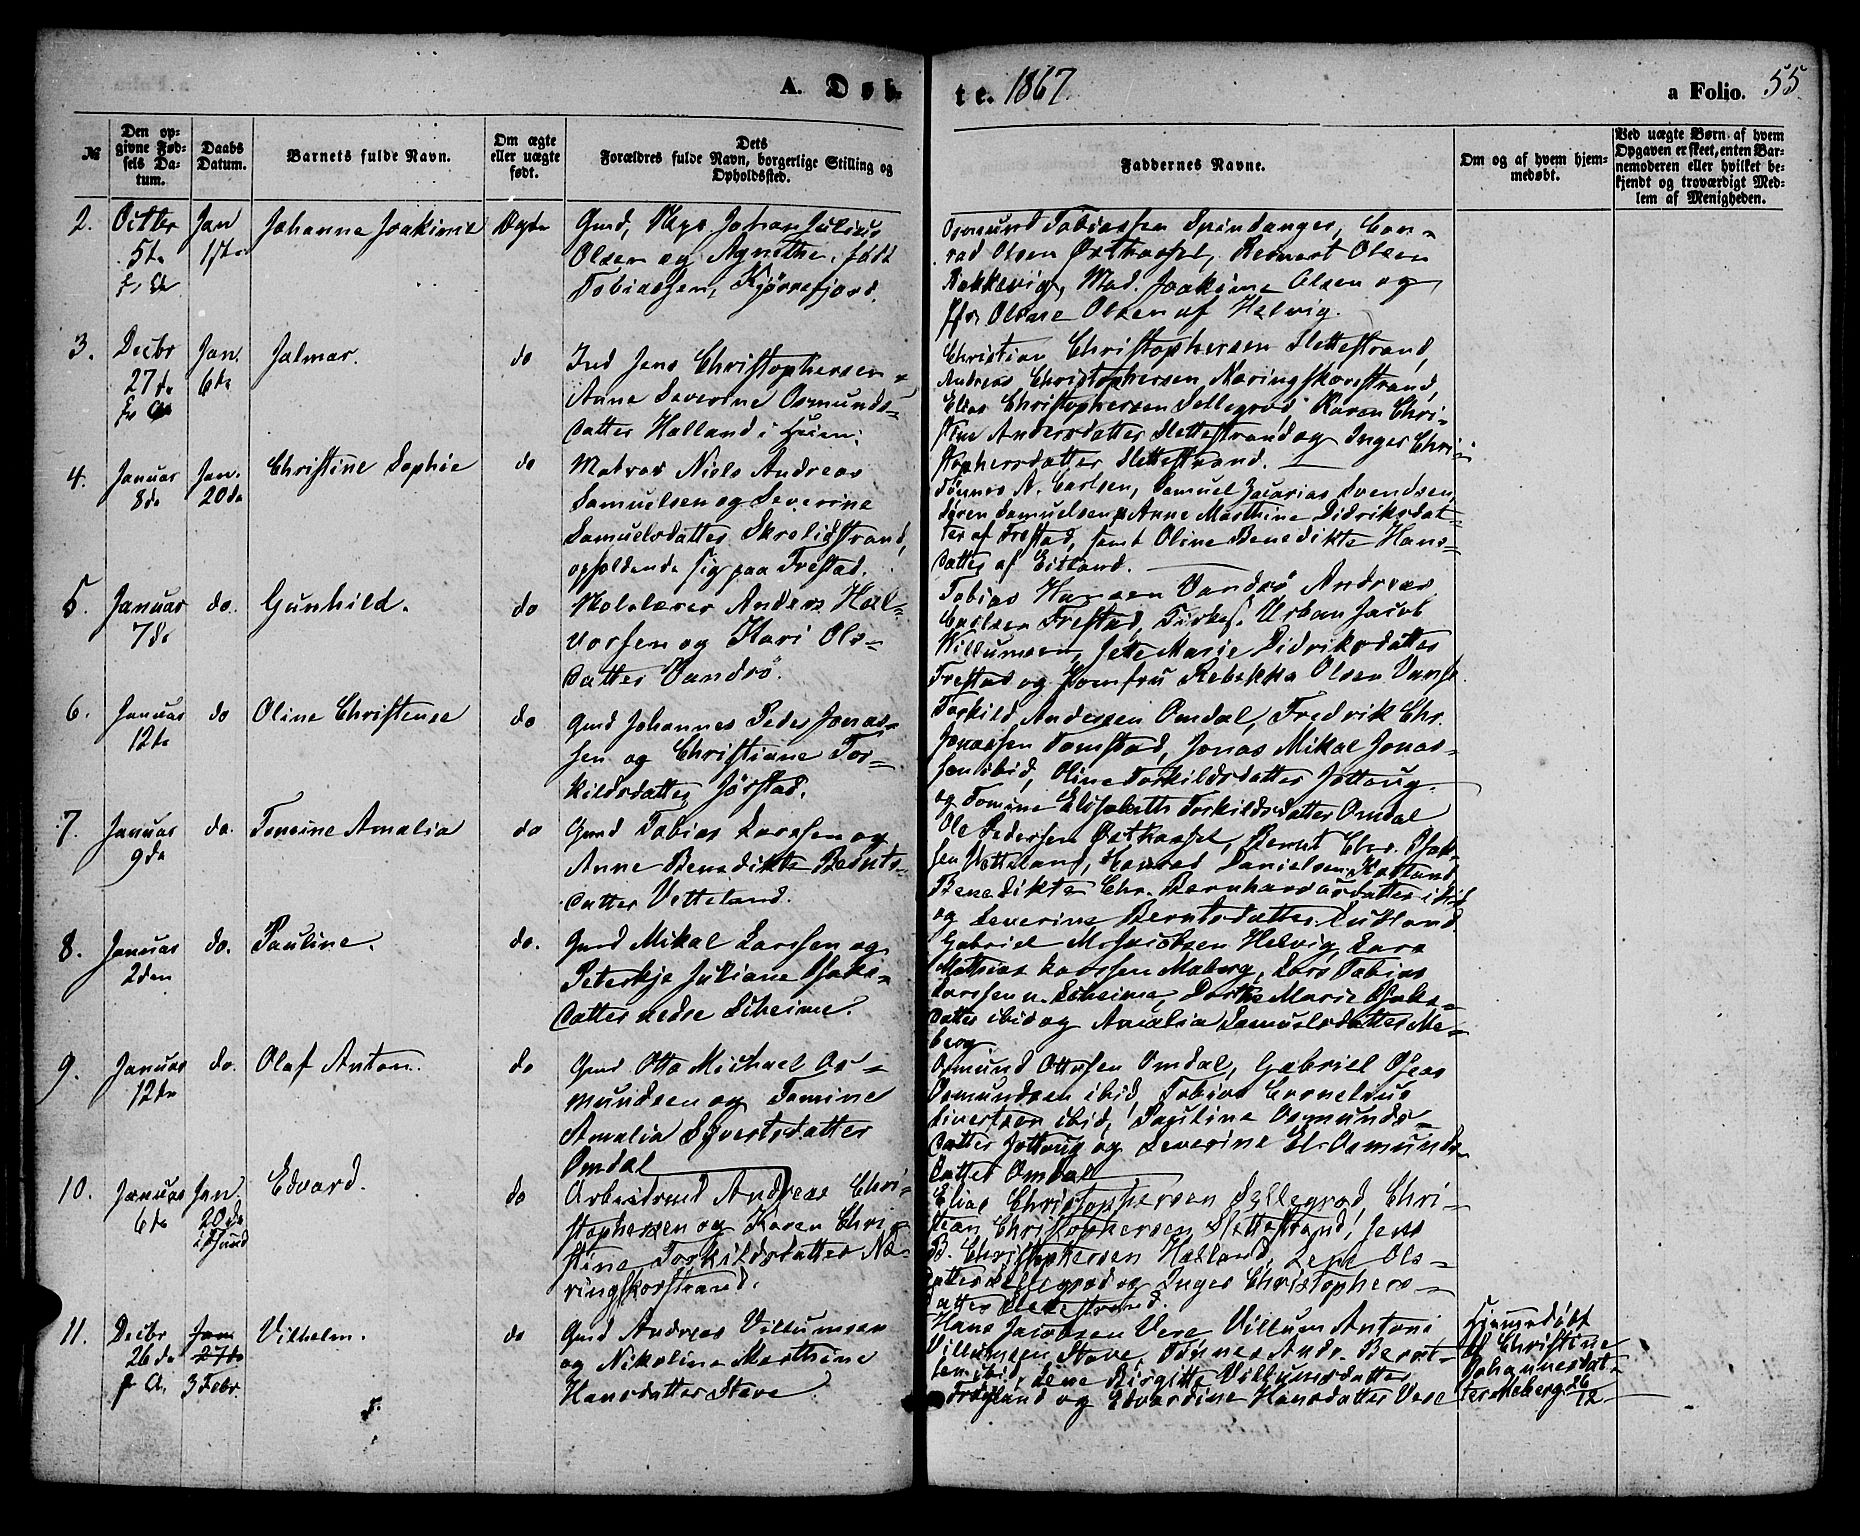 A. Døb-
te. 1867.
a Folio. 55.
№
Den op-
givne Fød-
sels Da-
tum.
Daabs
Datum.
Barnets fulde Navn.
Om ægte
eller uægte
født.
Dets
Forældres fulde Navn, borgerlige Stilling og
Opholdssted.
Faddernes Navne.
Om og af hvem hjem-
medøbt.
Ved uægte Børn af hvem
Opgaven er skeet, enten Bar-
nemoderen eller hvilket be-
kjendt og troværdigt Med-
lem af Menigheden.
2. Octbr
5te
f. A.
Jan
1ste
Johanne Joakime
Ægte
Gmd, Johan Julius
Olsen og Agnethe, født
Tobiassen, Kjørrefjord.
Osmund Tobiassen Spindanger, Con-
rad Olsen Østhassel, Bernert Olsen
Bakkevig, Mad. Joakime Olsen og
Olene Olsen af Helvig.
3. Decbr
27de
f. A.
Jan.
6te
Jalmar.
do
Ind Jens Christophersen
Anne Severine Osmunds-
datter Halland i Huseby
Christian Christophersen Slettestrand,
Andreas Christophersen Næringskorstrand,
Elias Christophersen Sellegrod Karen Chri-
stine Andersdatter Slettestrand og Inger Chri-
stophersdatter Slettestrand.
4. Januar
8de
Jan.
20de
Christine Sophie
do
Matros Niels Andreas
Samuelsen og Severine
Samuelsdatter Skreligstrand,
opholdende sig paa Frestad.
Tønnes A. Carlsen, Samuel Zacarias Svendsen,
Søren Samuelsen, Anne Marthine Didriksdat-
ter af Frestad, samt Oline Benedikte Hans-
datter af Eitland.
5. Januar
7de
do.
Gunhild.
do
Anders Hal-
vorsen og Kari Ols-
datter Vandsø.
Tobias Hansen Vandsø, Andreas
Carlsen Frestad, Kirkes. Urban Jacob
Willumsen, Jette Marie Didriksdatter
Frestad og Jomfru Rebekka Olsen Vanse.
6. Januar
12te
do
Oline Christense
do
Gmd Johannes Peder Jonas-
sen og Christiane Tor-
kildsdatter Jørstad.
Torkild Andersen Omdal, Fredrik Chr.
Jonassen Tomstad, Jonas Mikal Jonas-
sen ibid, Oline Torkildsdatter Jøttoug
og Tomine Elisabeth Torkildsdatter Omdal
7. Januar
9de
do.
Tomine Amalia
do
Gmd Tobias Larssen og
Anne Benedikte Bernts-
datter Vetteland.
Ole Pedersen Østhassel, Bernt Chr. Isak-
sen Vetteland, Konrad Danielsen Kalland
Benedikte Chr. Bernhardsdatter ibid
og Severine Berntsdatter
8. Januar
2den
do.
Pauline.
do.
Gmd Mikal Larssen og
Peterkje Juliane Isaks-
datter nedre Skeime.
Gabriel M. Jacobsen Helvig, Lars
Mathias Larssen Maberg, Lars Tobias
Larssen n. Skeime, Dorthe Marie Isaks-
datter ibid og Amalia Samuelsdatter Me-
berg
9. Januar
12te
do.
Olaf Anton.
do
Gmd Otto Michael Os-
mundsen og Tomine
Amalia Sivertsdatter
Omdal
Osmund Ottosen Omdal, Gabriel Oseas
Osmundsen ibid, Tobias Cornelius
Sivertsen ibid, Pauline Osmunds-
datter Jøttoug og Severine El. Osmunds-
datter Omdal
10. Januar
6te
Jan
20de
Edvard.
do
Arbeidsmd Andreas Chri-
stophersen og Karen Chri-
stine Torkildsdatter Næ-
ringskorstrand.
Elias Christophersen Sellegrod, Chri-
stian Christophersen Slettestrand, Jens
B. Christophersen Halland, Lene Ols-
datter Sellegrod og Inger Christophers-
datter Slettestrand.
11. Decbr
26de
f. A.
Jan
27de
3 Febr.
Vilhelm.
do
Gmd Andreas Villumsen
og Nikoline Marthine
Hansdatter Stave
Hans Jacobsen Vere, Villum Antoni
Villumsen Stave, Tønnes Andr. Bernt-
sen ibid, Lene Birgitte Villumsdatter
og Edvardine Hansdatter Vere
Hjemmedøbt
af Christine
Johannesdat-
ter Meberg 26/12